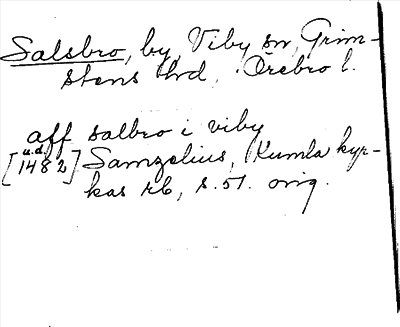 Salsbro, by, Viby sn, Grim-
stens hd, Örebro l.
aff salbro i viby
[u.d. 1482] Samzelius, Kumla kyr-
kas rb, s. 51. orig.